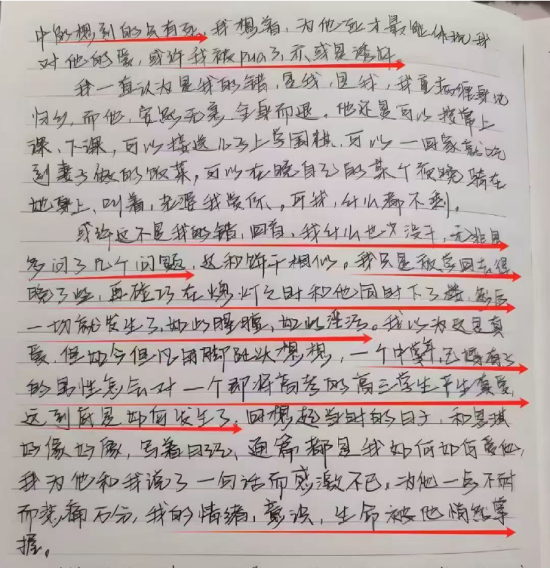 中的想到的只有死。我想着,为他死才最能体现我
对他的爱,或许我被pua了,亦或是清醒
我一直认为是我的错,是我,是我,我
归乡,而他,安然无恙,全身而退。他还是可以按常上
课,下课,可以接送儿子上学围棋,可以一回家就吃
到妻子做的饭菜,可以在晚自己的某个夜晚骑在
她身上,叫着,老婆我爱你。可我,什么都不剩。
或许这不是我的错,回首,我什么也没干,无非是
多问了几个问题,这和饼干相似。我只是放学回去得
晚了些,再碰巧在熄灯之时和他同时下了楼,然后
一切就发生了,如此朦胧,如此淫荡。我以为这是真
爱,但如今但凡用脚趾头想想,一个中年,已婚有子
的男性怎会对一个即将高考的高三学生产生真爱,
这到底是如何发生了。回想起当时的日子,和思琪
好像好像,写着日记,通篇都是我如何如何爱他,
我为他和我说了一句话而感激不已,为他一点不耐
而悲痛万分,我的情绪,意识,生命被他悄然掌
握。